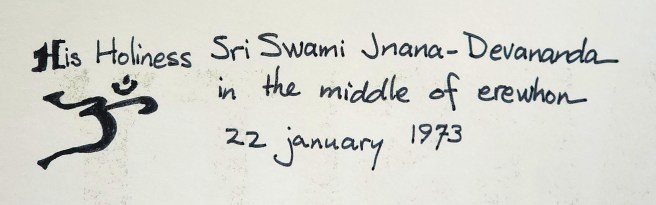 His Holiness Sri Swami Jnana-Devananda
in the middle of erewhon
ॐ
22 january 1973